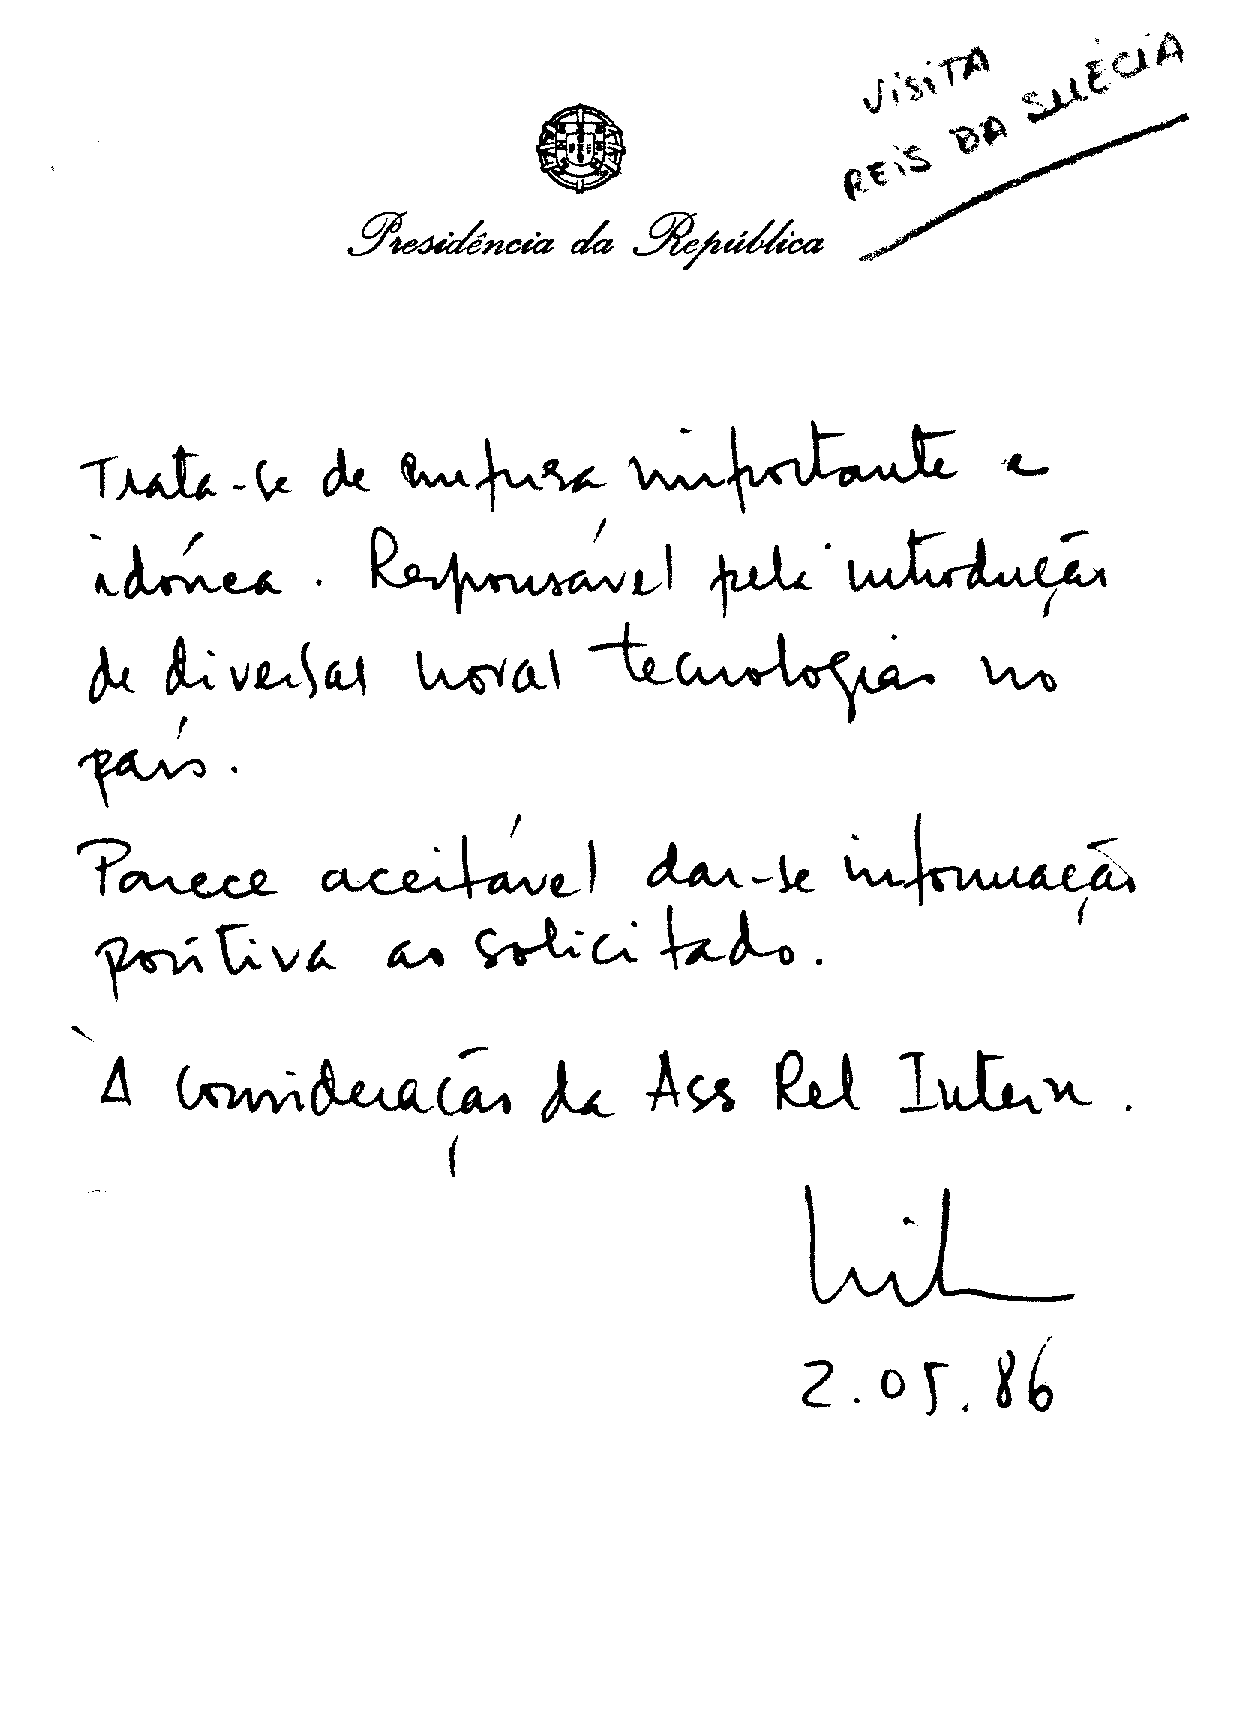 VISITA
REIS DA SUÉCIA
Presidência da República
Trata-se de empresa importante e
idónea. Responsável pela introdução
de diversas novas tecnologias no
país.
Parece aceitável dar-se informação
positiva ao solicitado.
À consideração da Ass Rel Intern.
2.05.86